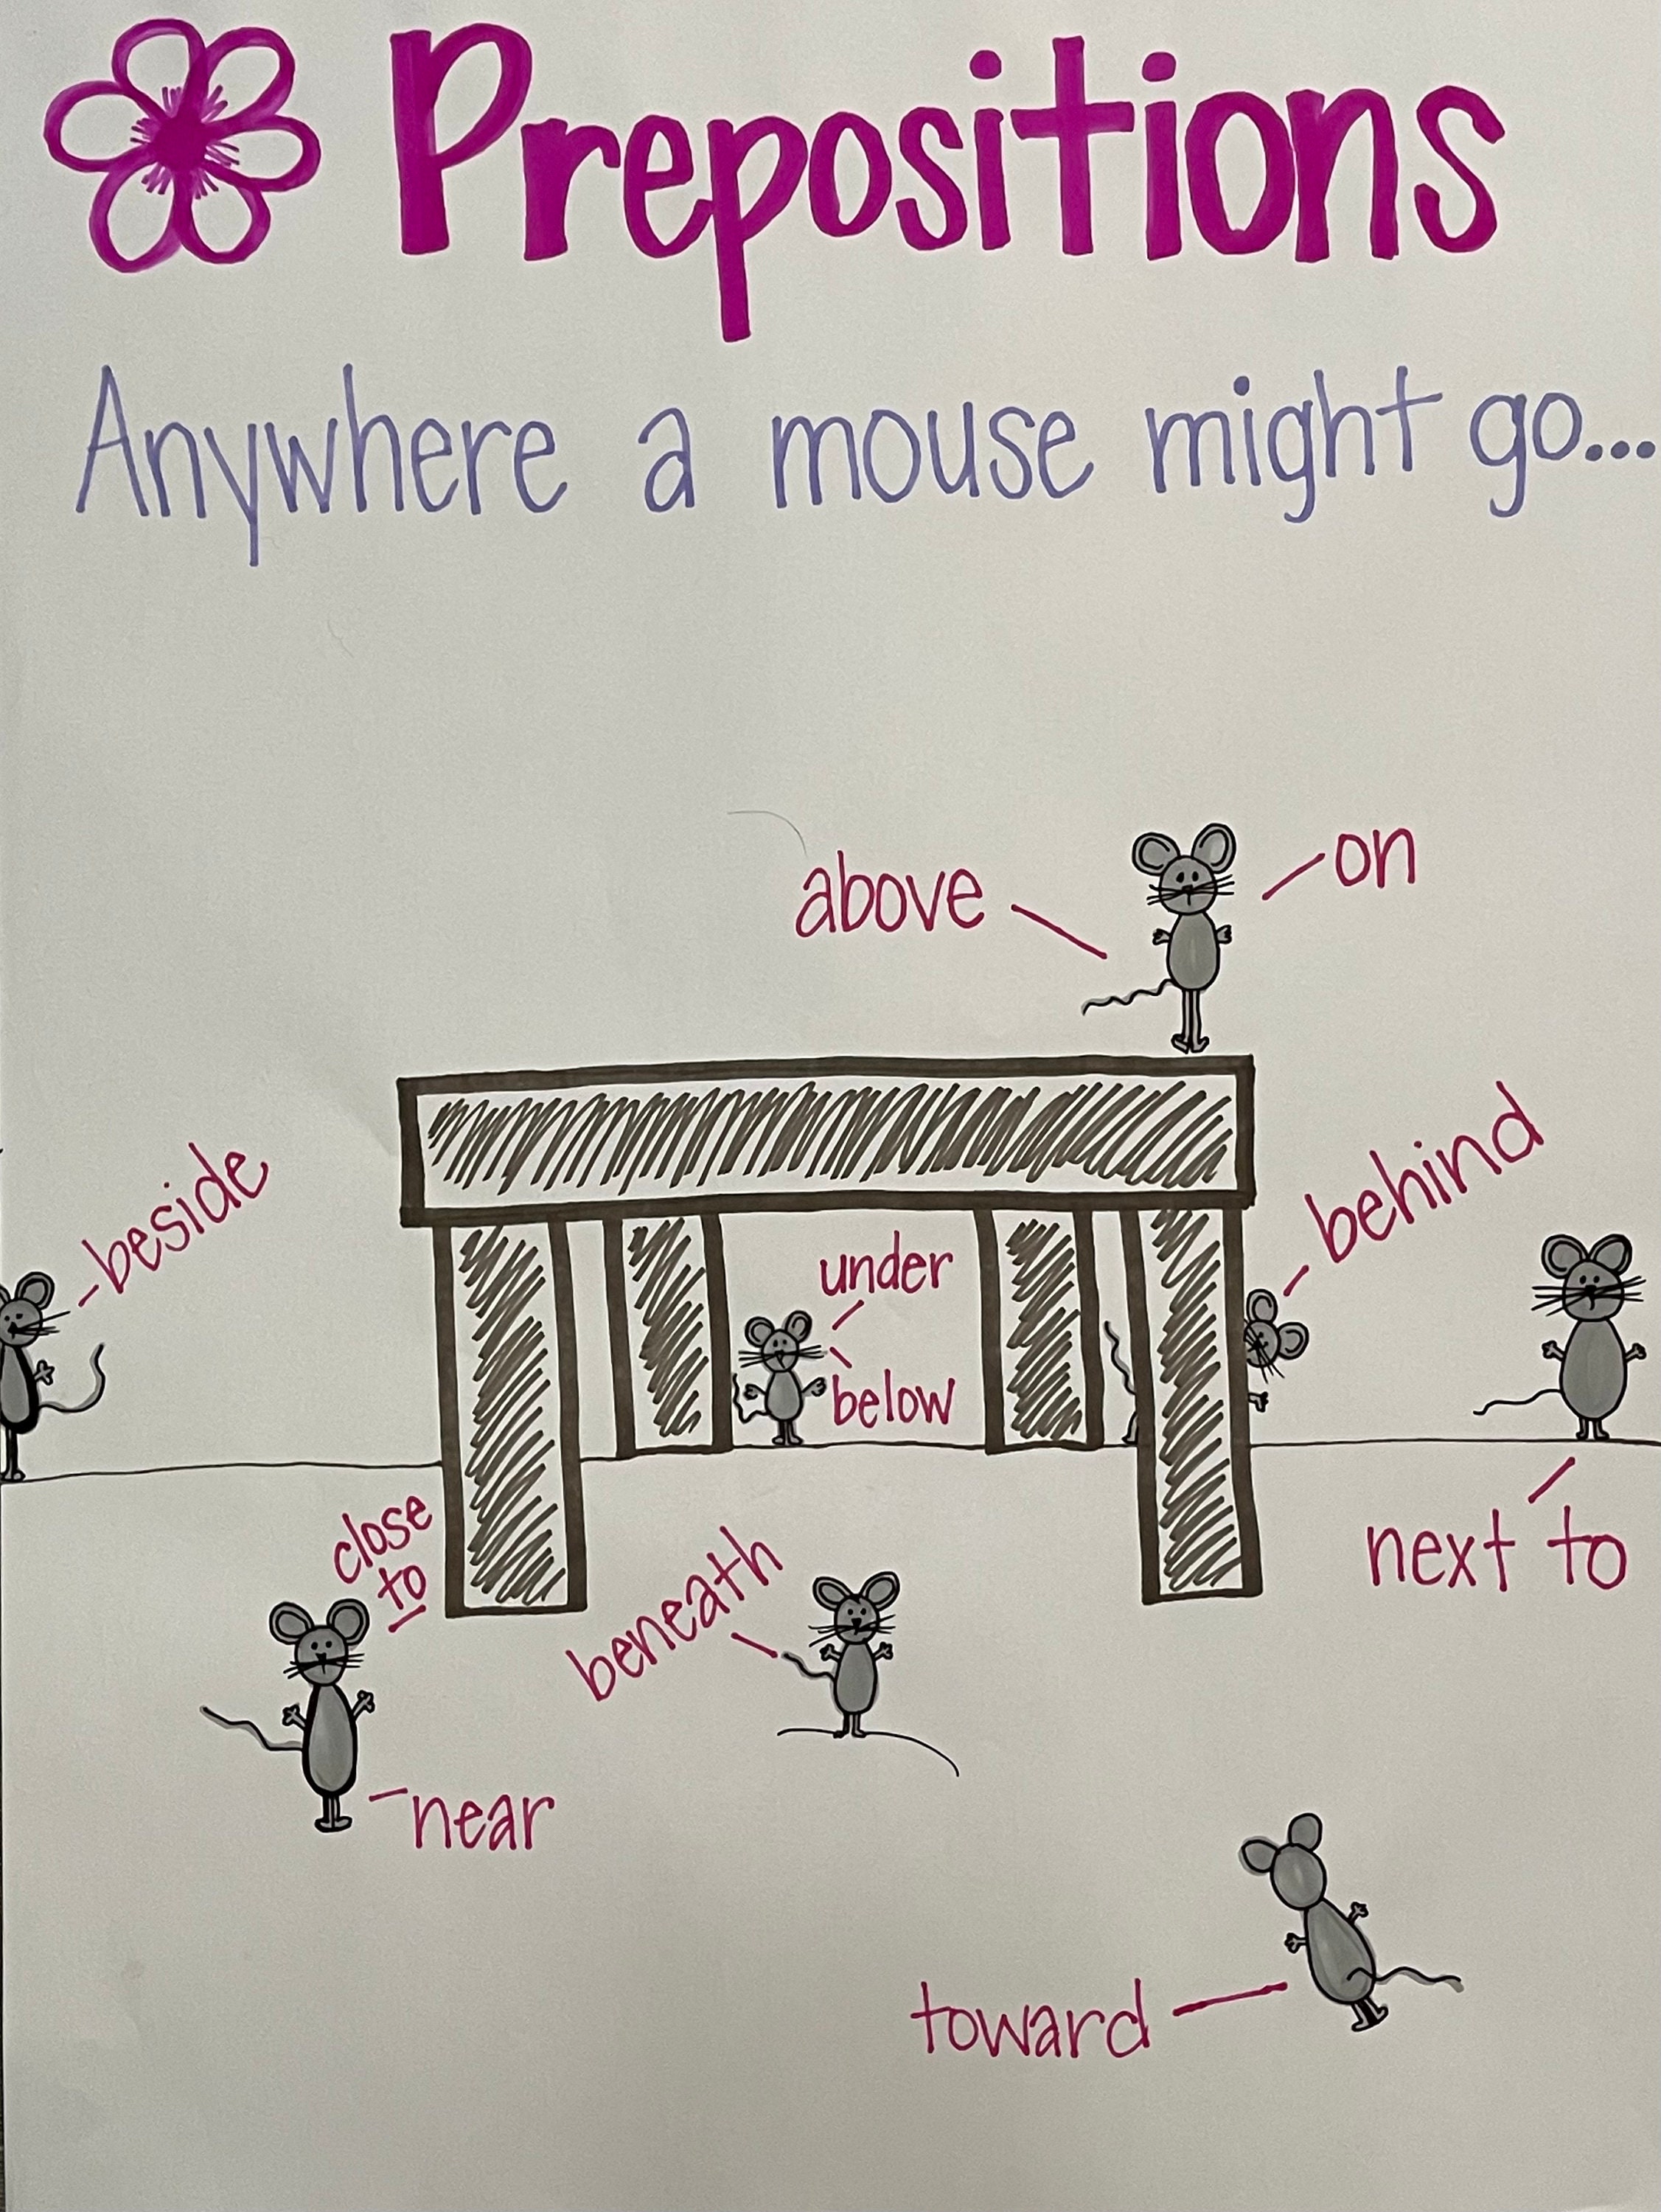 Prepositions
Anywhere a mouse might go...
above
on
beside
behind
under
below
close
to
beneath
next to
near
toward